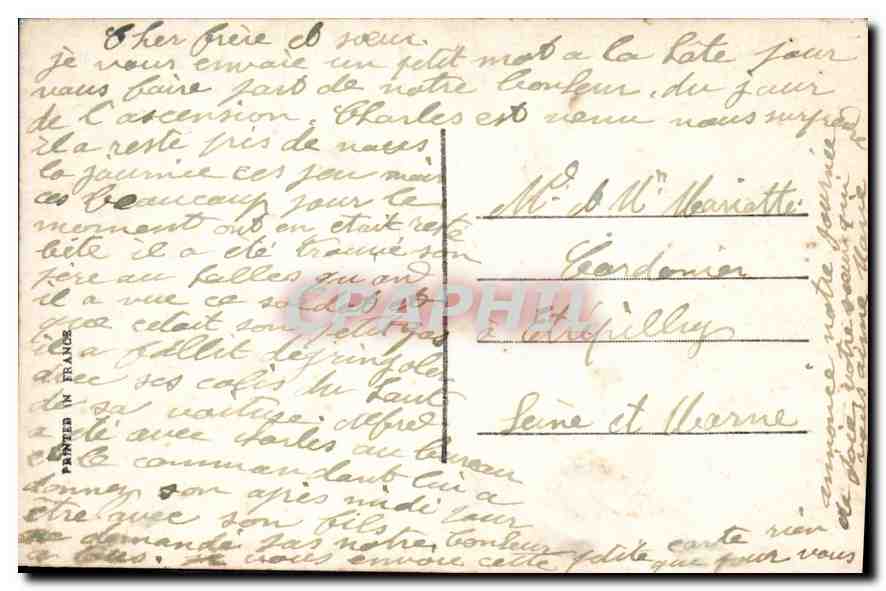 Cher frère et sœur.
je vous envoie un petit mot a la hâte pour
vous faire part de notre bonheur. du jour
de l'ascension. Charles est venu nous surprendre
il a resté près de nous
la journée ces peu mais
ces beaucoup pour le
moment ont en était resté
bête il a été trouvé son
père au halles quand
il a vue ce soldat et
que cetait son petit gas
il a fallit dégringoler
avec ses colis du haut
de sa voiture. Alfred
a été avec Charles au bureau
et le commandant lui a
donnez son après midi pour
être avec son fils
de demandé pas notre bonheur
a tous. Je vous envoie cette petite carte rien
que pour vous
annonce notre journée
de joie votre sœur qui
vous aime Marie
Md et Mn Mariotte
Cordonier
à Etrépilly
Seine et Marne
PRINTED IN FRANCE
CPAPHIL